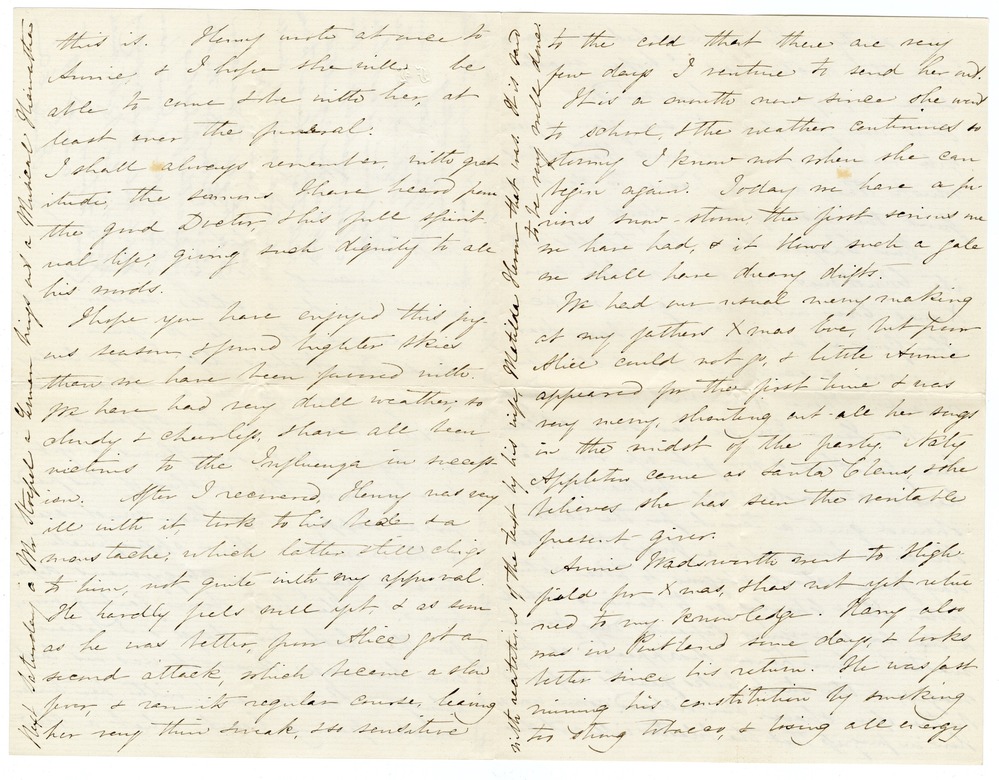 this is. Henry wrote at once to
Annie, & I hope she will be
able to come & be with her, at
least over the funeral.
I shall always remember, with grat
itude, the sermons I have heard from
the good Doctor, & his full spirit
ual life, giving such dignity to all
his words.
I hope you have enjoyed this joy-
ous season, & found brighter skies
than we have been favored with.
We have had very dull weather, so
cloudy & cheerless, & have all been
victims to the Influenza in success-
ion. After I recovered, Henry was very
ill with it, took to his bed & a
moustache, which latter still clings
to him, not quite with my approval.
He hardly feels well yet & as soon
as he was better, poor Alice got a
second attack, which became a slow
fever, & ran its regular course, leaving
her very thin & weak, & so sensitive
Next Saturday a Mr Stoepel a German brings out a Musical Hiawatha
to the cold that there are very
few days I venture to send her out.
It is a month now since she went
to school, & the weather continues so
stormy I know not when she can
begin again. Today we have a fu-
rious snow storm, the first serious one
we have had, & it blows such a gale
we shall have dreary drifts.
We had our usual merry making
at my father's Xmas Eve, but poor
Alice could not go, & little Annie
appeared for the first time & was
very merry, shouting out all her songs
in the midst of the party. Naty
Appleton came as Santa Claus, & she
believes she has seen the veritable
present-giver.
Annie Wadsworth went to High
field for Xmas, & has not yet retur
ned to my knowledge. Harry also
was in Portland some days, & looks
better since his return. He was fast
ruining his constitution by smoking
too strong tobacco, & losing all energy
with recitations of the text by his wife, Matilda Heron that was. It is said
to be very well done.